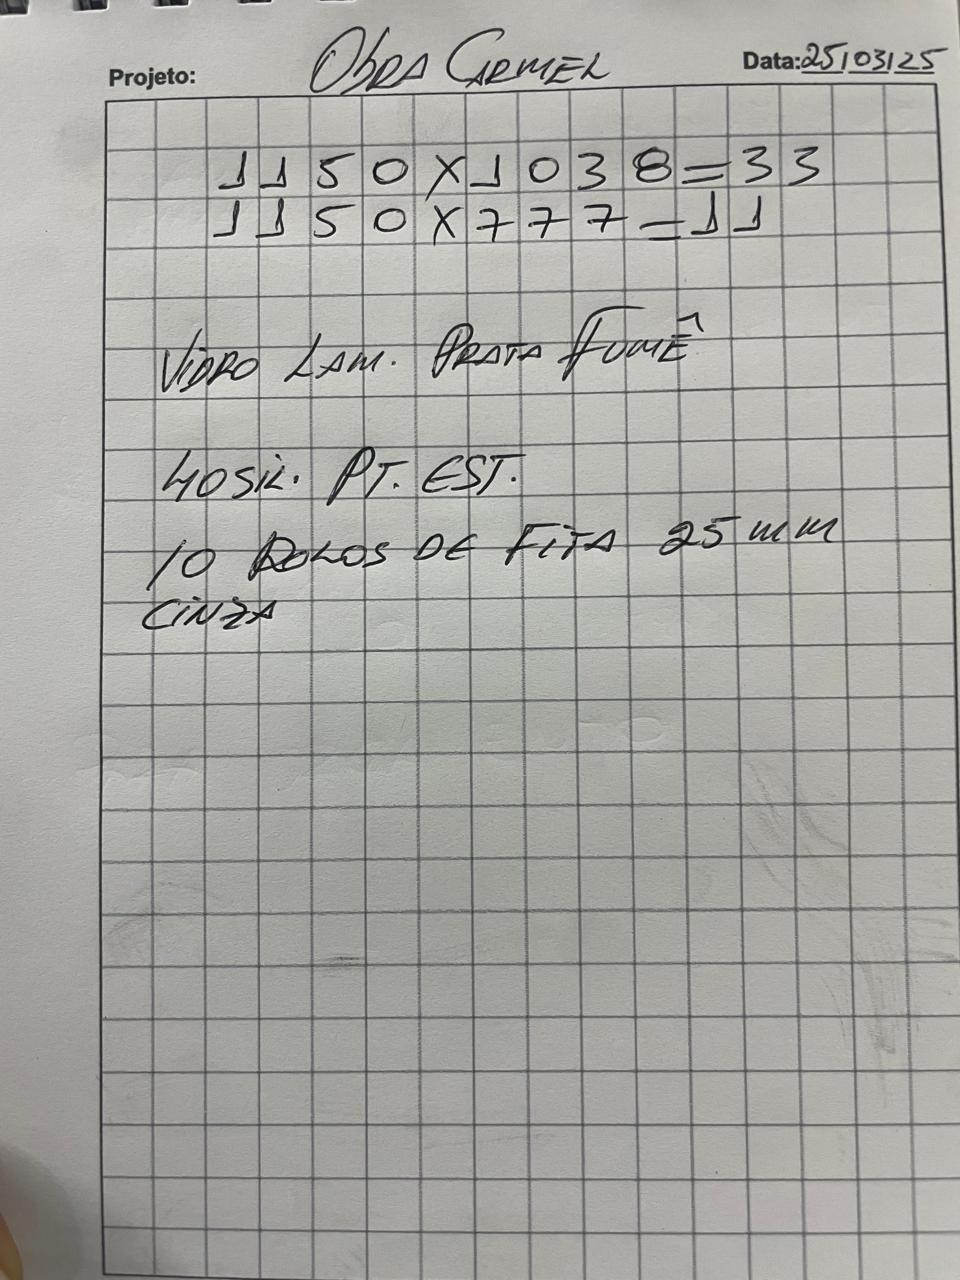 Projeto: Obra Carmel Data: 25/03/25
1150X1038=33
1150X777=11
VIDRO LAM. PRATA FUMÊ
40 SIL. PT. EST.
10 ROLOS DE FITA 25 mm
CINZA